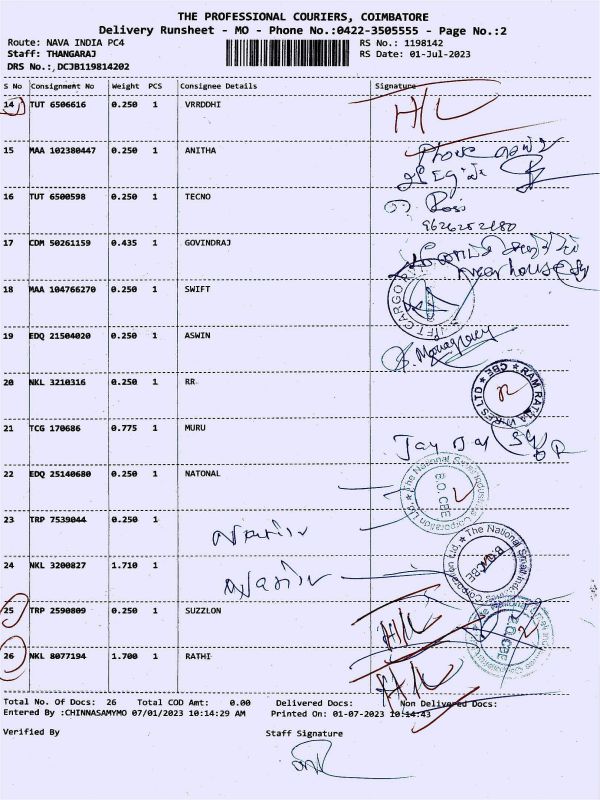 THE PROFESSIONAL COURIERS, COIMBATORE
Delivery Runsheet - MO - Phone No.:0422-3505555 - Page No.:2
Route: NAVA INDIA PC4 RS No.: 1198142
Staff: THANGARAJ RS Date: 01-Jul-2023
DRS No.:,DCJB119814202
S No Consignment No Weight PCS Consignee Details Signature
14 TUT 6506616 0.250 1 VRRDDHI H/L
15 MAA 102380447 0.250 1 ANITHA
16 TUT 6500598 0.250 1 TECNO
17 CDM 50261159 0.435 1 GOVINDRAJ
18 MAA 104766270 0.250 1 SWIFT
19 EDQ 21504020 0.250 1 ASWIN
20 NKL 3210316 0.250 1 RR
21 TCG 170686 0.775 1 MURU
22 EDQ 25140680 0.250 1 NATONAL
23 TRP 7539044 0.250 1
24 NKL 3200827 1.710 1
25 TRP 2590809 0.250 1 SUZZLON H/L
26 NKL 8077194 1.700 1 RATHI H/L
Total No. Of Docs: 26 Total COD Amt: 0.00 Delivered Docs: Non Delivered Docs:
Entered By :CHINNASAMYMO 07/01/2023 10:14:29 AM Printed On: 01-07-2023 10:14:43
Verified By Staff Signature